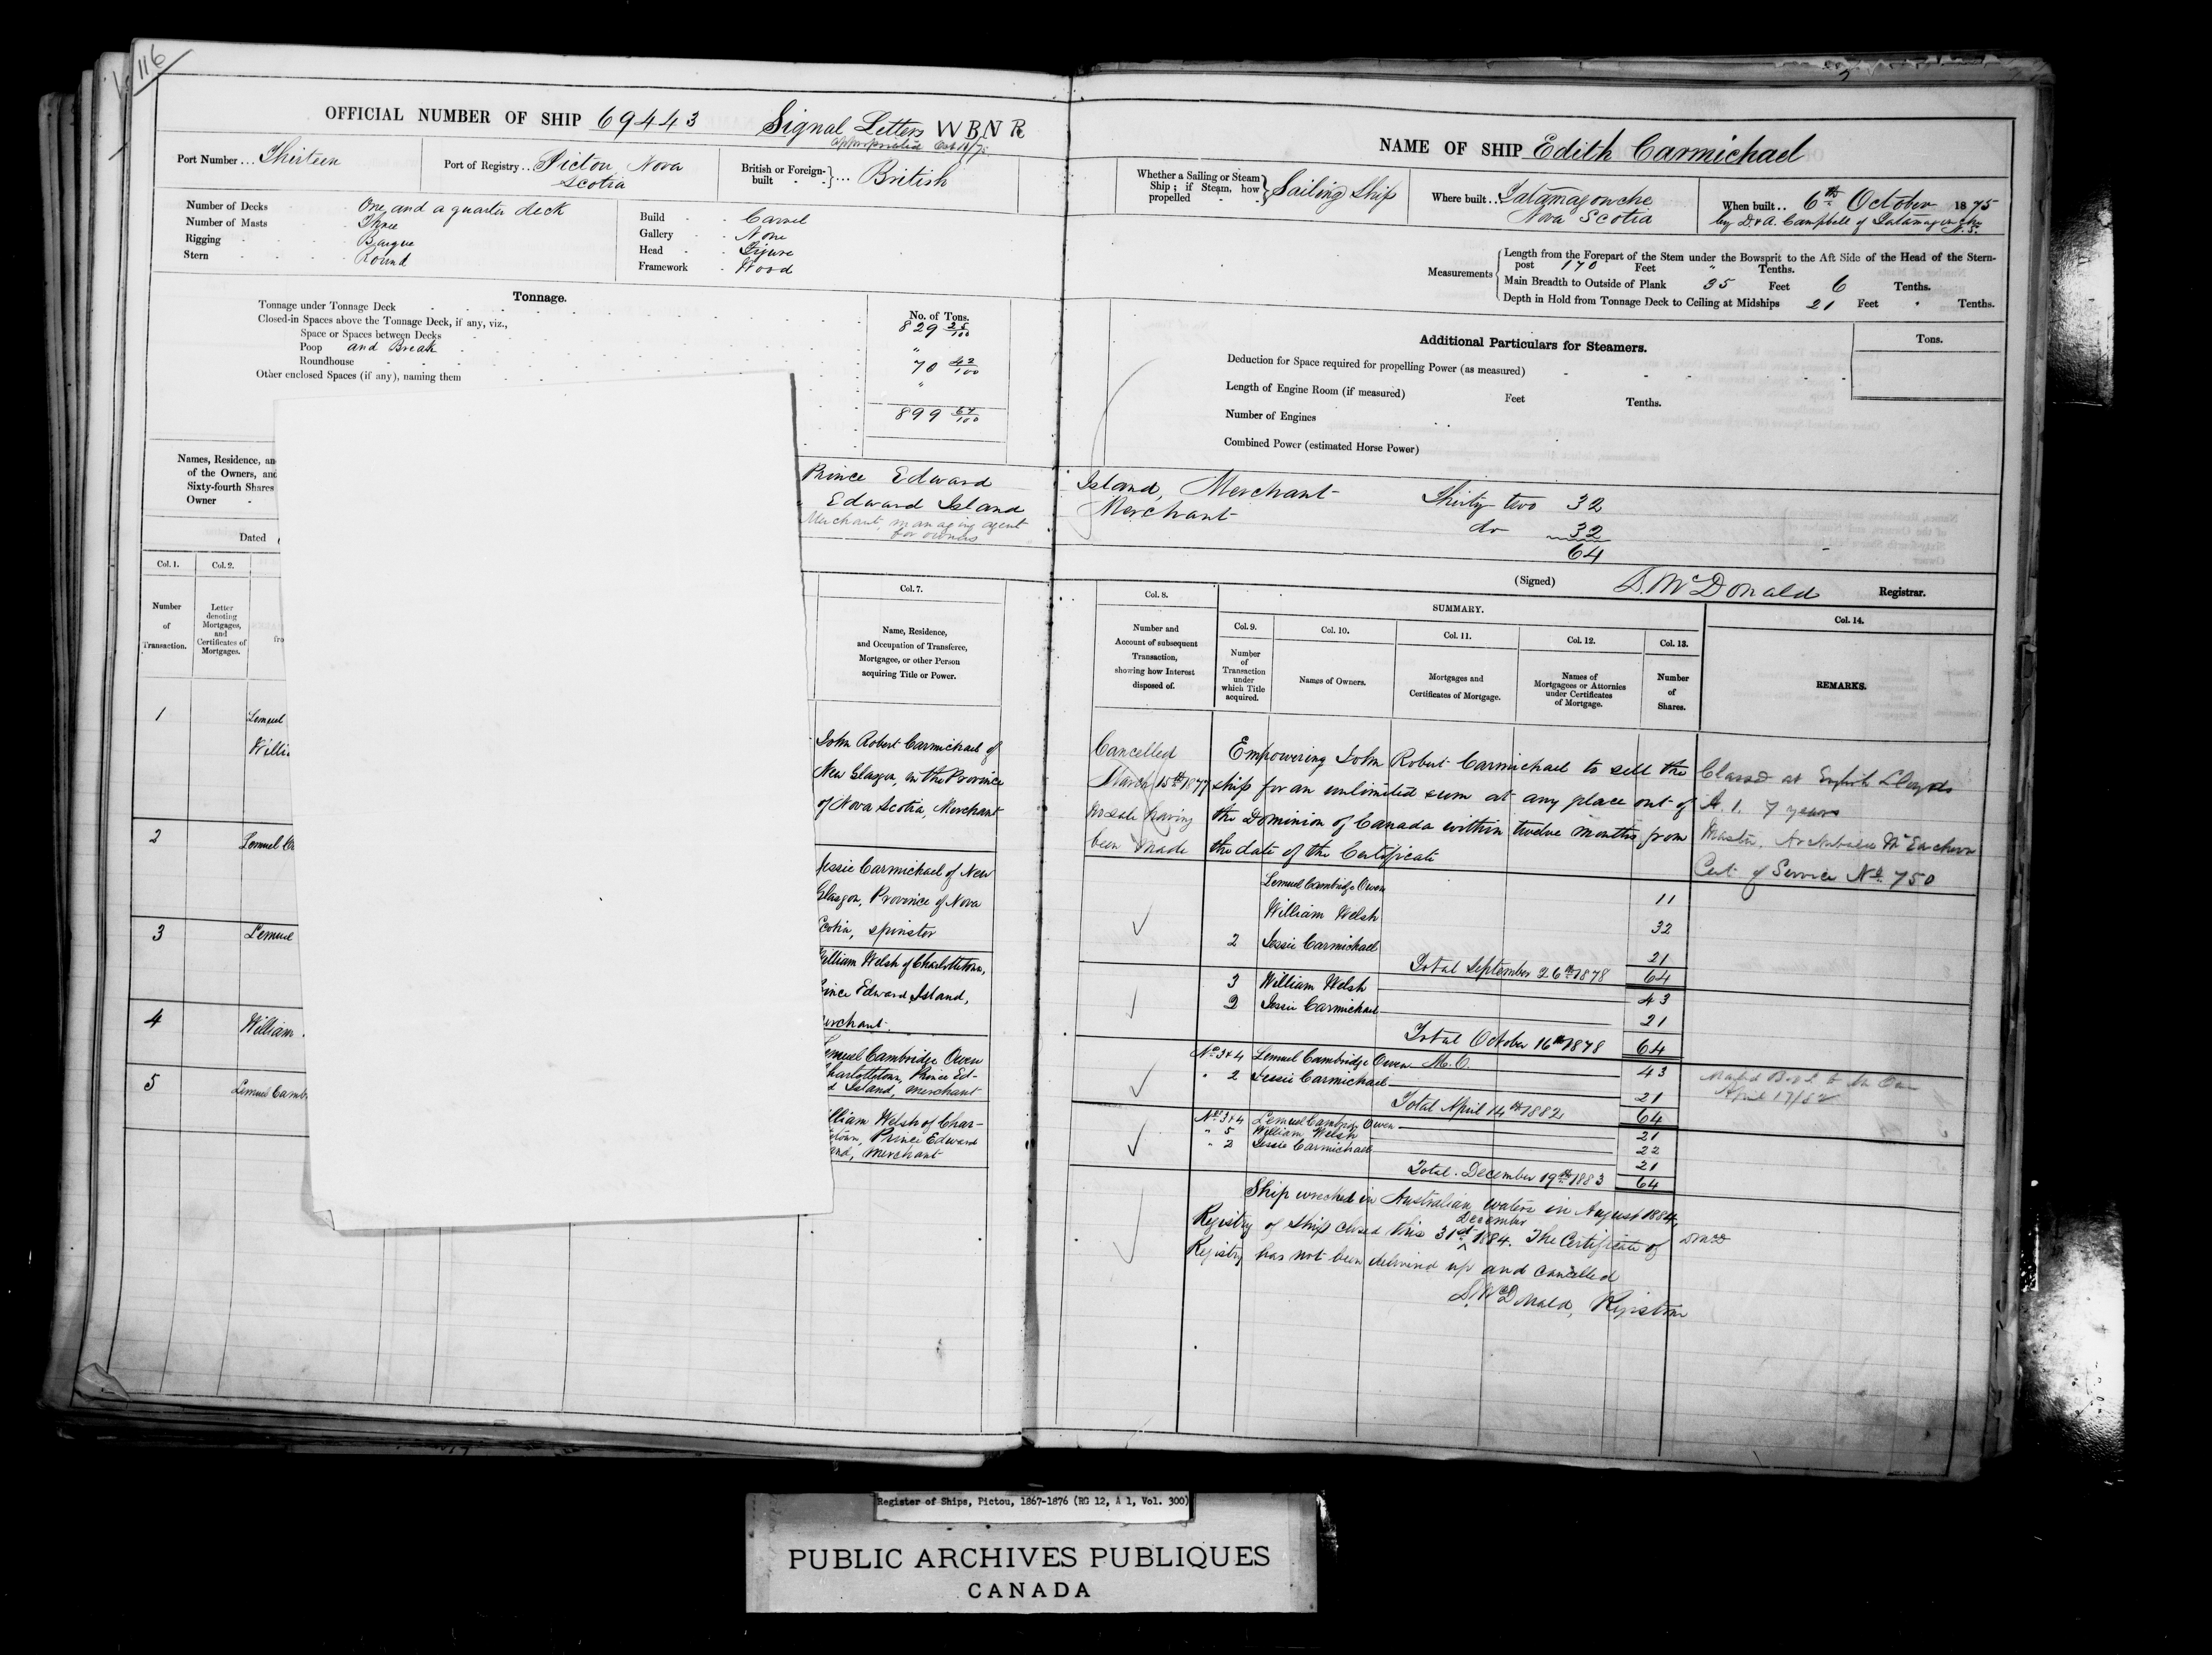 116
OFFICIAL NUMBER OF SHIP 69443 Signal Letters W B N R
appropriated Oct
Port Number... Thirteen
Port of Registry.. Pictou Nova
Scotia
British or Foreign-
built ... British
Number of Decks One and a quarter deck
Number of Masts Three
Rigging Barque
Stern Round
Build Carvel
Gallery None
Head Figure
Framework Wood
Tonnage.
No. of Tons.
Tonnage under Tonnage Deck 829 25/100
Closed-in Spaces above the Tonnage Deck, if any, viz.,
Space or Spaces between Decks "
Poop and Break 70 42/100
Roundhouse "
Other enclosed Spaces (if any), naming them
899 67/100
Names, Residence, an
of the Owners, and
Sixty-fourth Shares
Owner
Dated
Prince Edward
Edward Island
Merchant, managing agent
for owners
Col. 1.
Number
of
Transaction.
Col. 2.
Letter
denoting
Mortgages,
and
Certificates of
Mortgages.
fro
Col. 7.
Name, Residence,
and Occupation of Transferee,
Mortgagee, or other Person
acquiring Title or Power.
1 Lemuel
Willi
John Robert Carmichael of
New Glasgow, in the Province
of Nova Scotia, Merchant
2 Lemuel Ca
Jessie Carmichael of New
Glasgow, Province of Nova
Scotia, spinster
3 Lemuel
William Welsh of Charlottetown,
Prince Edward Island,
Merchant.
4 William
Lemuel Cambridge Owen
Charlottetown, Prince Ed-
d Island, Merchant
5 Lemuel Camb
illiam Welsh of Char-
town, Prince Edward
and, Merchant
NAME OF SHIP Edith Carmichael
Whether a Sailing or Steam
Ship; if Steam, how
propelled
Sailing Ship
Where built.. Tatamagouche
Nova Scotia
When built.. 6th October 1875
by D. & A. Campbell of Tatamagouche
N.S.
Measurements
Length from the Forepart of the Stem under the Bowsprit to the Aft Side of the Head of the Stern-
post 170 Feet " Tenths.
Main Breadth to Outside of Plank 35 Feet 6 Tenths.
Depth in Hold from Tonnage Deck to Ceiling at Midships 21 Feet " Tenths.
Additional Particulars for Steamers.
Tons.
Deduction for Space required for propelling Power (as measured)
Length of Engine Room (if measured) Feet Tenths.
Number of Engines
Combined Power (estimated Horse Power)
Island, Merchant Thirty two 32
Merchant do 32
64
(Signed) D. McDonald Registrar.
Col. 8.
Number and
Account of subsequent
Transaction,
showing how Interest
disposed of.
SUMMARY.
Col. 9.
Number
of
Transaction
under
which Title
acquired.
Col. 10.
Names of Owners.
Col. 11.
Mortgages and
Certificates of Mortgage.
Col. 12.
Names of
Mortgagees or Attornies
under Certificates
of Mortgage.
Col. 13.
Number
of
Shares.
Col. 14.
REMARKS.
Cancelled
March 15th 1877
no sale having
been made
Empowering John Robert Carmichael to sell the
ship for an unlimited sum at any place out of
the Dominion of Canada within twelve months from
the date of the Certificate
Classed at English Lloyds
A. 1. 7 years
Master, Archibald McEachern
Cert. of Service No. 750
Lemuel Cambridge Owen 11
William Welsh 32
2 Jessie Carmichael 21
Total September 26th 1878 64
3 William Welsh 43
2 Jessie Carmichael 21
Total October 16th 1878 64
No. 3 & 4 Lemuel Cambridge Owen M.O. 43
" 2 Jessie Carmichael 21
Total April 14th 1882 64
April 17/82
Nos 3 & 4 Lemuel Cambridge Owen 21
" 5 William Welsh 22
" 2 Jessie Carmichael 21
Total December 19th 1883 64
Ship wrecked in Australian waters in August 1884.
Registry of Ship closed this 31st December 1884. The Certificate of
Registry has not been delivered up and cancelled
D McD
D. McDonald, Registrar
Register of Ships, Pictou, 1867-1876 (RG 12, A 1, Vol. 300)
PUBLIC ARCHIVES PUBLIQUES
CANADA